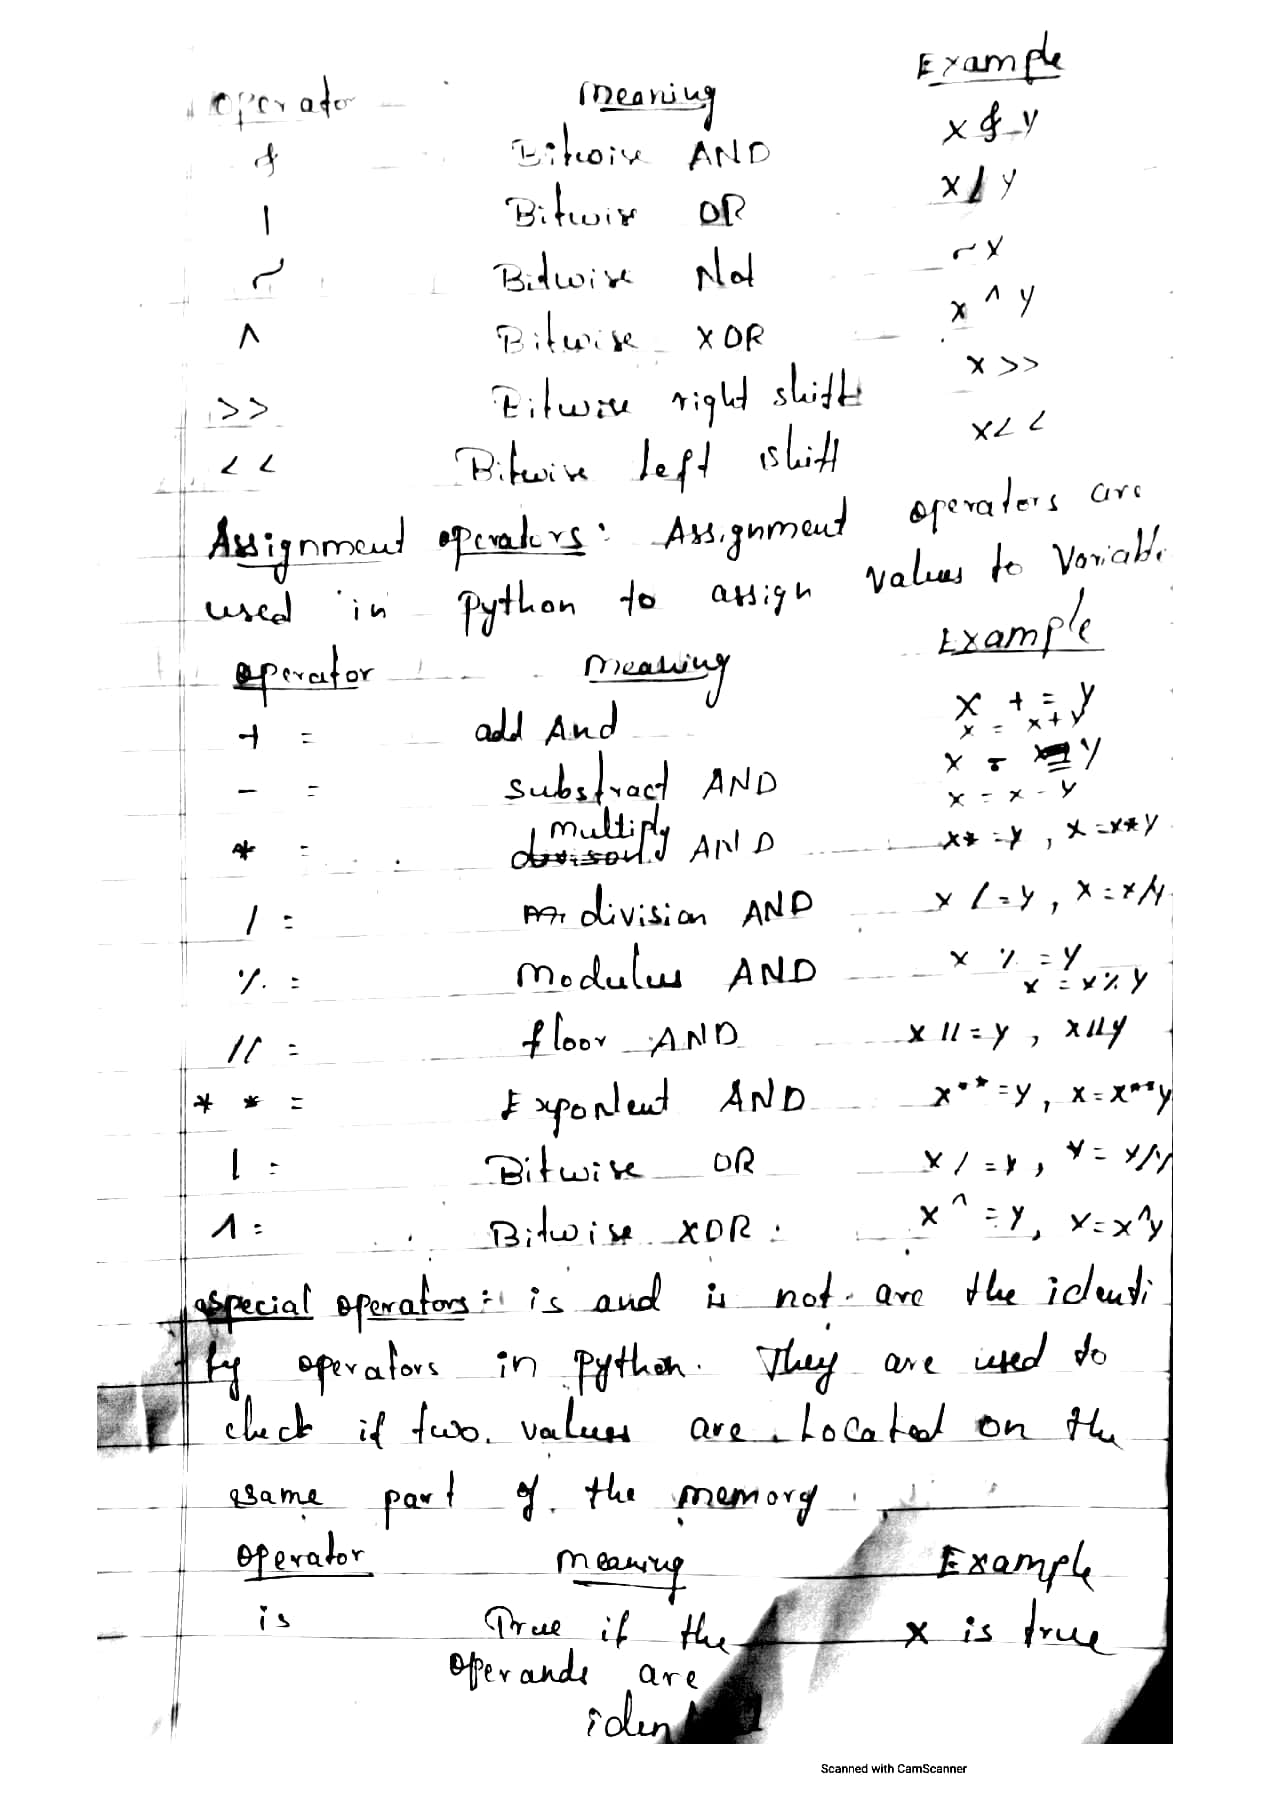 operator Meaning Example
& Bitwise AND x & y
| Bitwise OR x | y
~ Bitwise Not ~ x
^ Bitwise XOR x ^ y
>> Bitwise right shift x >>
<< Bitwise left shift x <<
Assignment operators: Assignment operators are
used in python to assign values to Variable
operator meaning Example
+ = add And x + = y
x = x + y
- = substract AND x - = y
x = x - y
multiply
* = AND x* = y , x = x**y
/ = division AND x / = y , x = x/y
% = Modulus AND x % = y
x = x % y
// = floor AND x // = y , x // y
* * = Exponent AND x** = y , x = x**y
| = Bitwise OR x / = y , x = x/y
^ = Bitwise XOR . x ^ = y, x = x^y
special operators :- is and is not are the identi
ty operators in python. They are used to
check if two values are Located on the
same part of the memory
operator meaning Example
is True if the x is true
operands are
Scanned with CamScanner